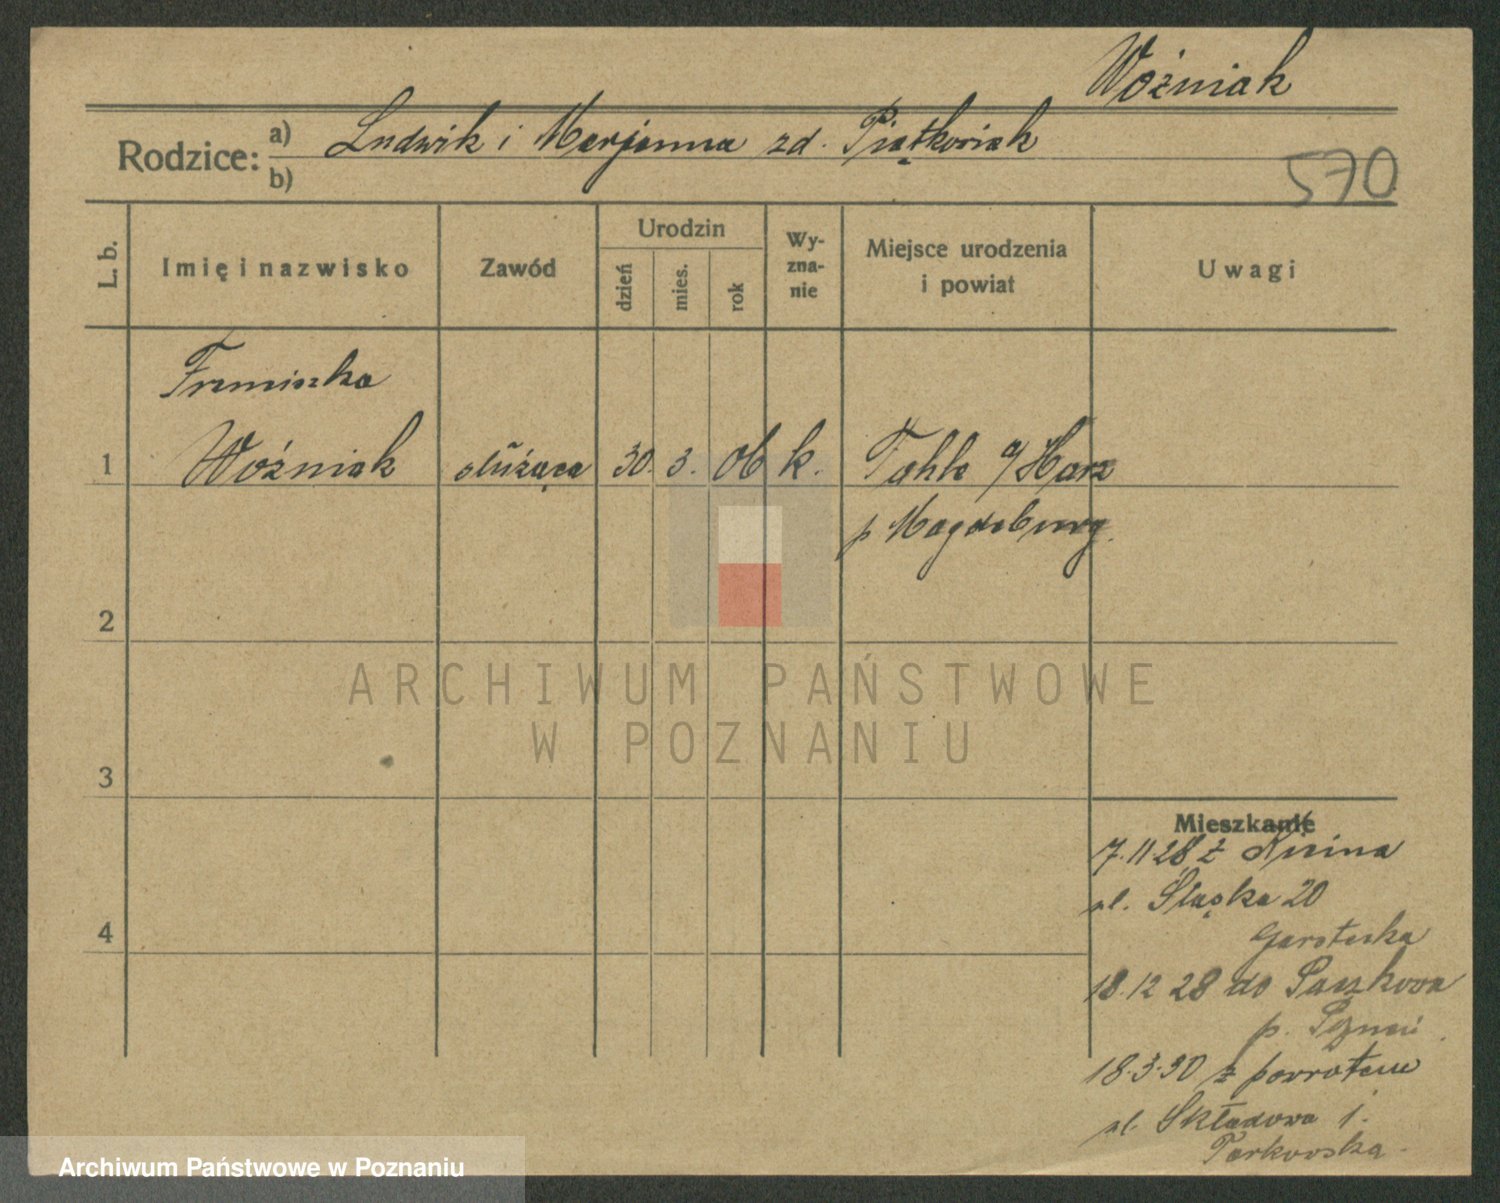 Woźniak
Rodzice: a) Ludwik i Marjanna zd. Piątkowiak
b)
570
L. b.
Imię i nazwisko
Zawód
Urodzin
dzień
mies.
rok
Wy-
zna-
nie
Miejsce urodzenia
i powiat
Uwagi
Franciszka
1 Woźniak służąca 30. 3. 06 k. Tahle a/Harz
p Magdeburg.
2
3
4
Mieszkanie
7.11 28 z
ul. Śląska 20
18.12 28 do
p.
18.3.30 z powrotem
ul. Składowa 1.
Tarkowska.
ARCHIWUM PAŃSTWOWE
W POZNANIU
Archiwum Państwowe w Poznaniu